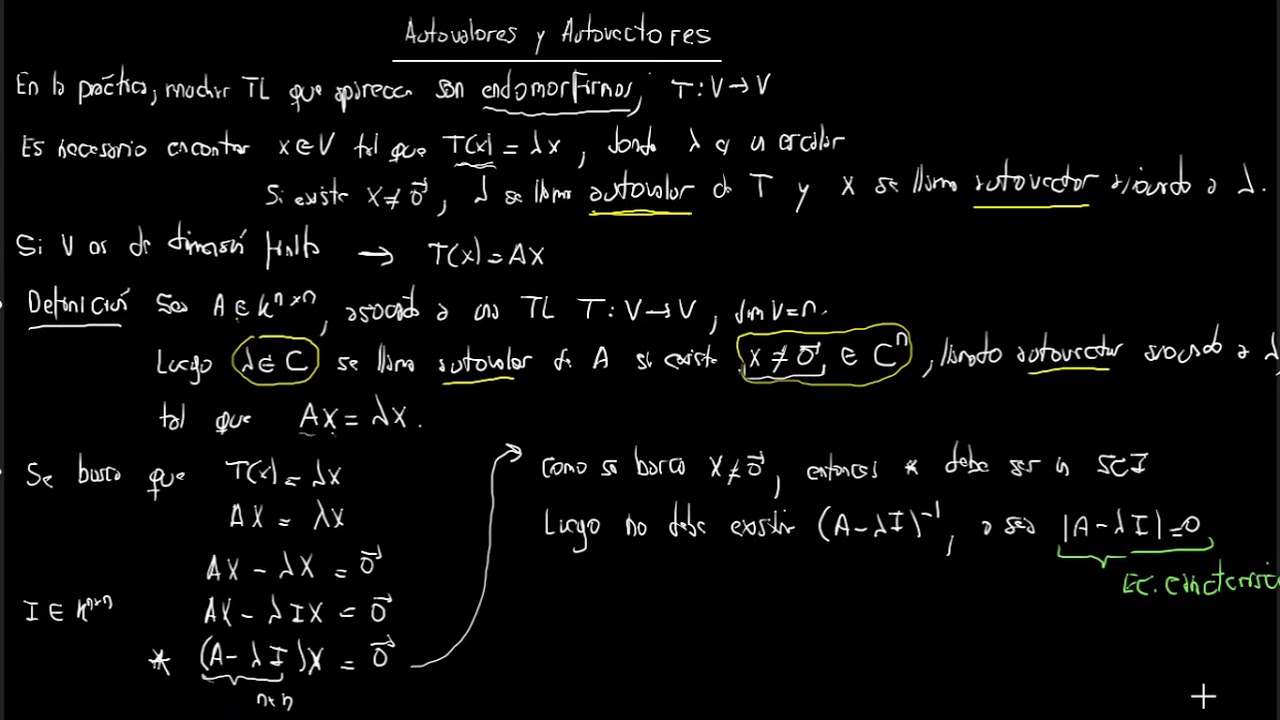 Autovalores y Autovectores
En la práctica, muchas TL que aparecen son endomorfismos, T: V → V
Es necesario encontrar x ∈ V tal que T(x) = λx, donde λ es un escalar
Si existe x ≠ 0⃗, λ se llama autovalor de T y x se llama autovector asociado a λ.
Si V es de dimensión finita → T(x) = AX
Definición Sea A ∈ K^{n×n}, asociada a una TL T: V → V, dim V = n.
Luego λ ∈ C se llama autovalor de A si existe x ≠ 0⃗, ∈ C^n, llamado autovector asociado a λ,
tal que AX = λX.
Se busca que T(x) = λx
AX = λX
AX - λX = 0⃗
I ∈ K^{n×n} AX - λIX = 0⃗
* (A - λI)X = 0⃗
n×n
Como se busca X ≠ 0⃗, entonces * debe ser un SCI
Luego no debe existir (A - λI)^{-1}, o sea |A - λI| = 0